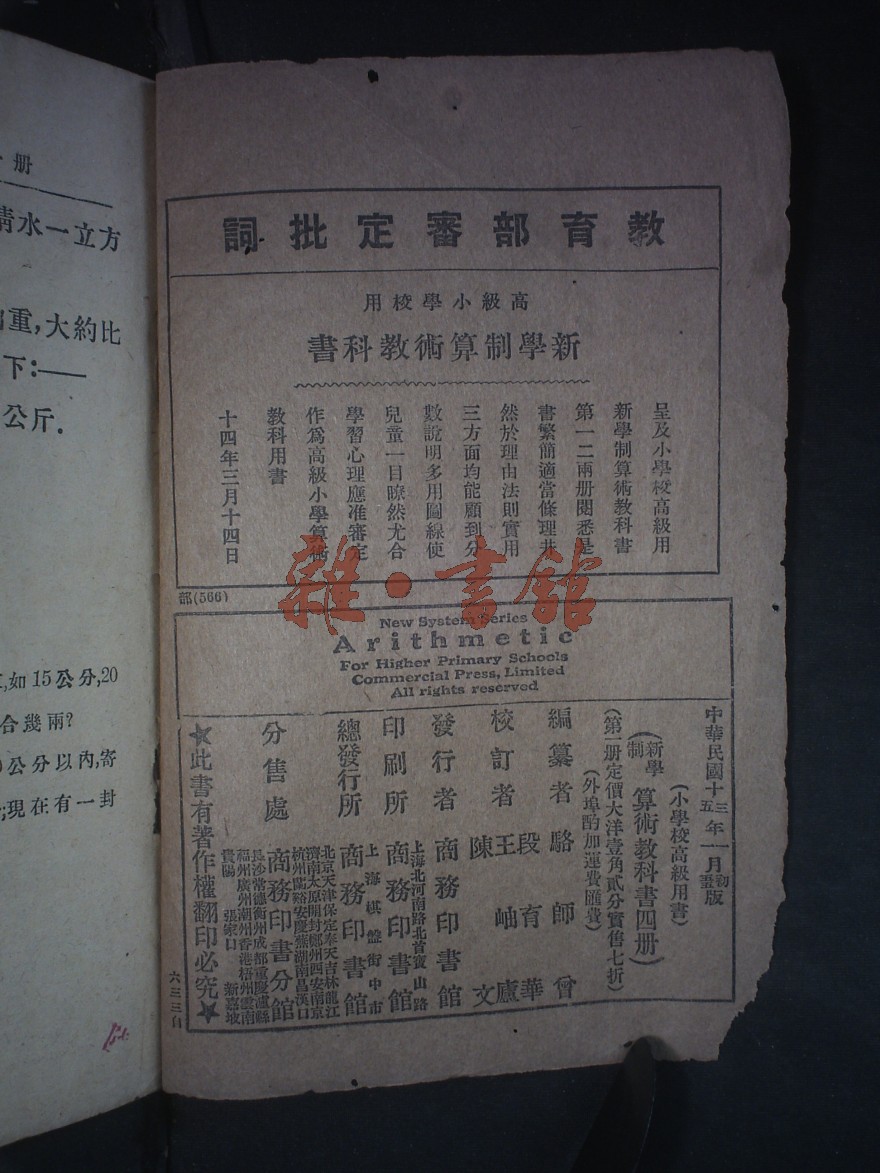 教育部審定批詞
高級小學校用
新學制算術教科書
呈及小學校高級用
新學制算術教科書
第一二兩册閱悉是
書繁簡適當條理井
然於理由法則實用
三方面均能顧到分
數說明多用圖線使
兒童一目瞭然尤合
學習心理應准審定
作爲高級小學算術
教科用書
十四年三月十四日
部(566)
雜·書館
New System Series
Arithmetic
For Higher Primary Schools
Commercial Press, Limited
All rights reserved
(小學校高級用書)
(新學制算術教科書四册)
(第一册定價大洋壹角貳分實售七折)
(外埠酌加運費匯費)
編纂者 駱師曾
段育華
校訂者 王岫廬
陳文
發行者 商務印書館
上海北河南路北首寶山路
印刷所 商務印書館
上海棋盤街中市
總發行所 商務印書館
北京天津保定奉天吉林龍江
濟南太原開封鄭州西安南京
杭州蘭谿安慶蕪湖南昌漢口
分售處 商務印書分館
長沙常德衡州成都重慶瀘縣
福州廣州潮州香港梧州雲南
貴陽 張家口 新嘉坡
★此書有著作權翻印必究★
六三三自
册
清水一立方
重,大約比
下:——
公斤.
如15公分,20
合幾兩?
公分以內,寄
現在有一封